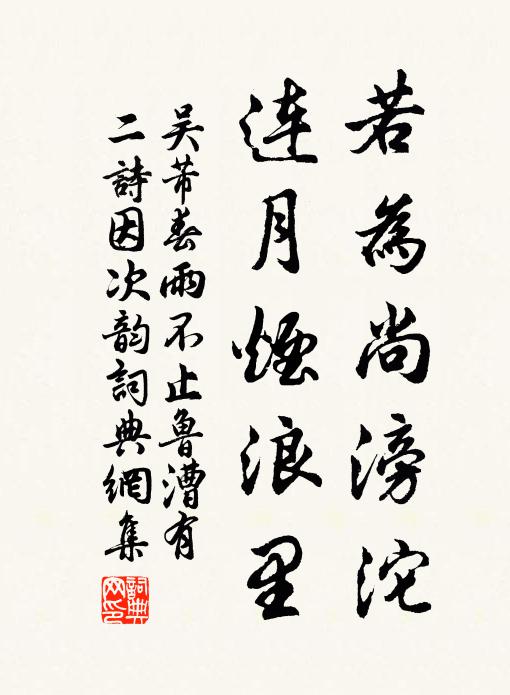 若為尚滂沱
連月煙浪里
吴芾春雨不止魯漕有
二詩因次韵詞典網集
詞典
网印